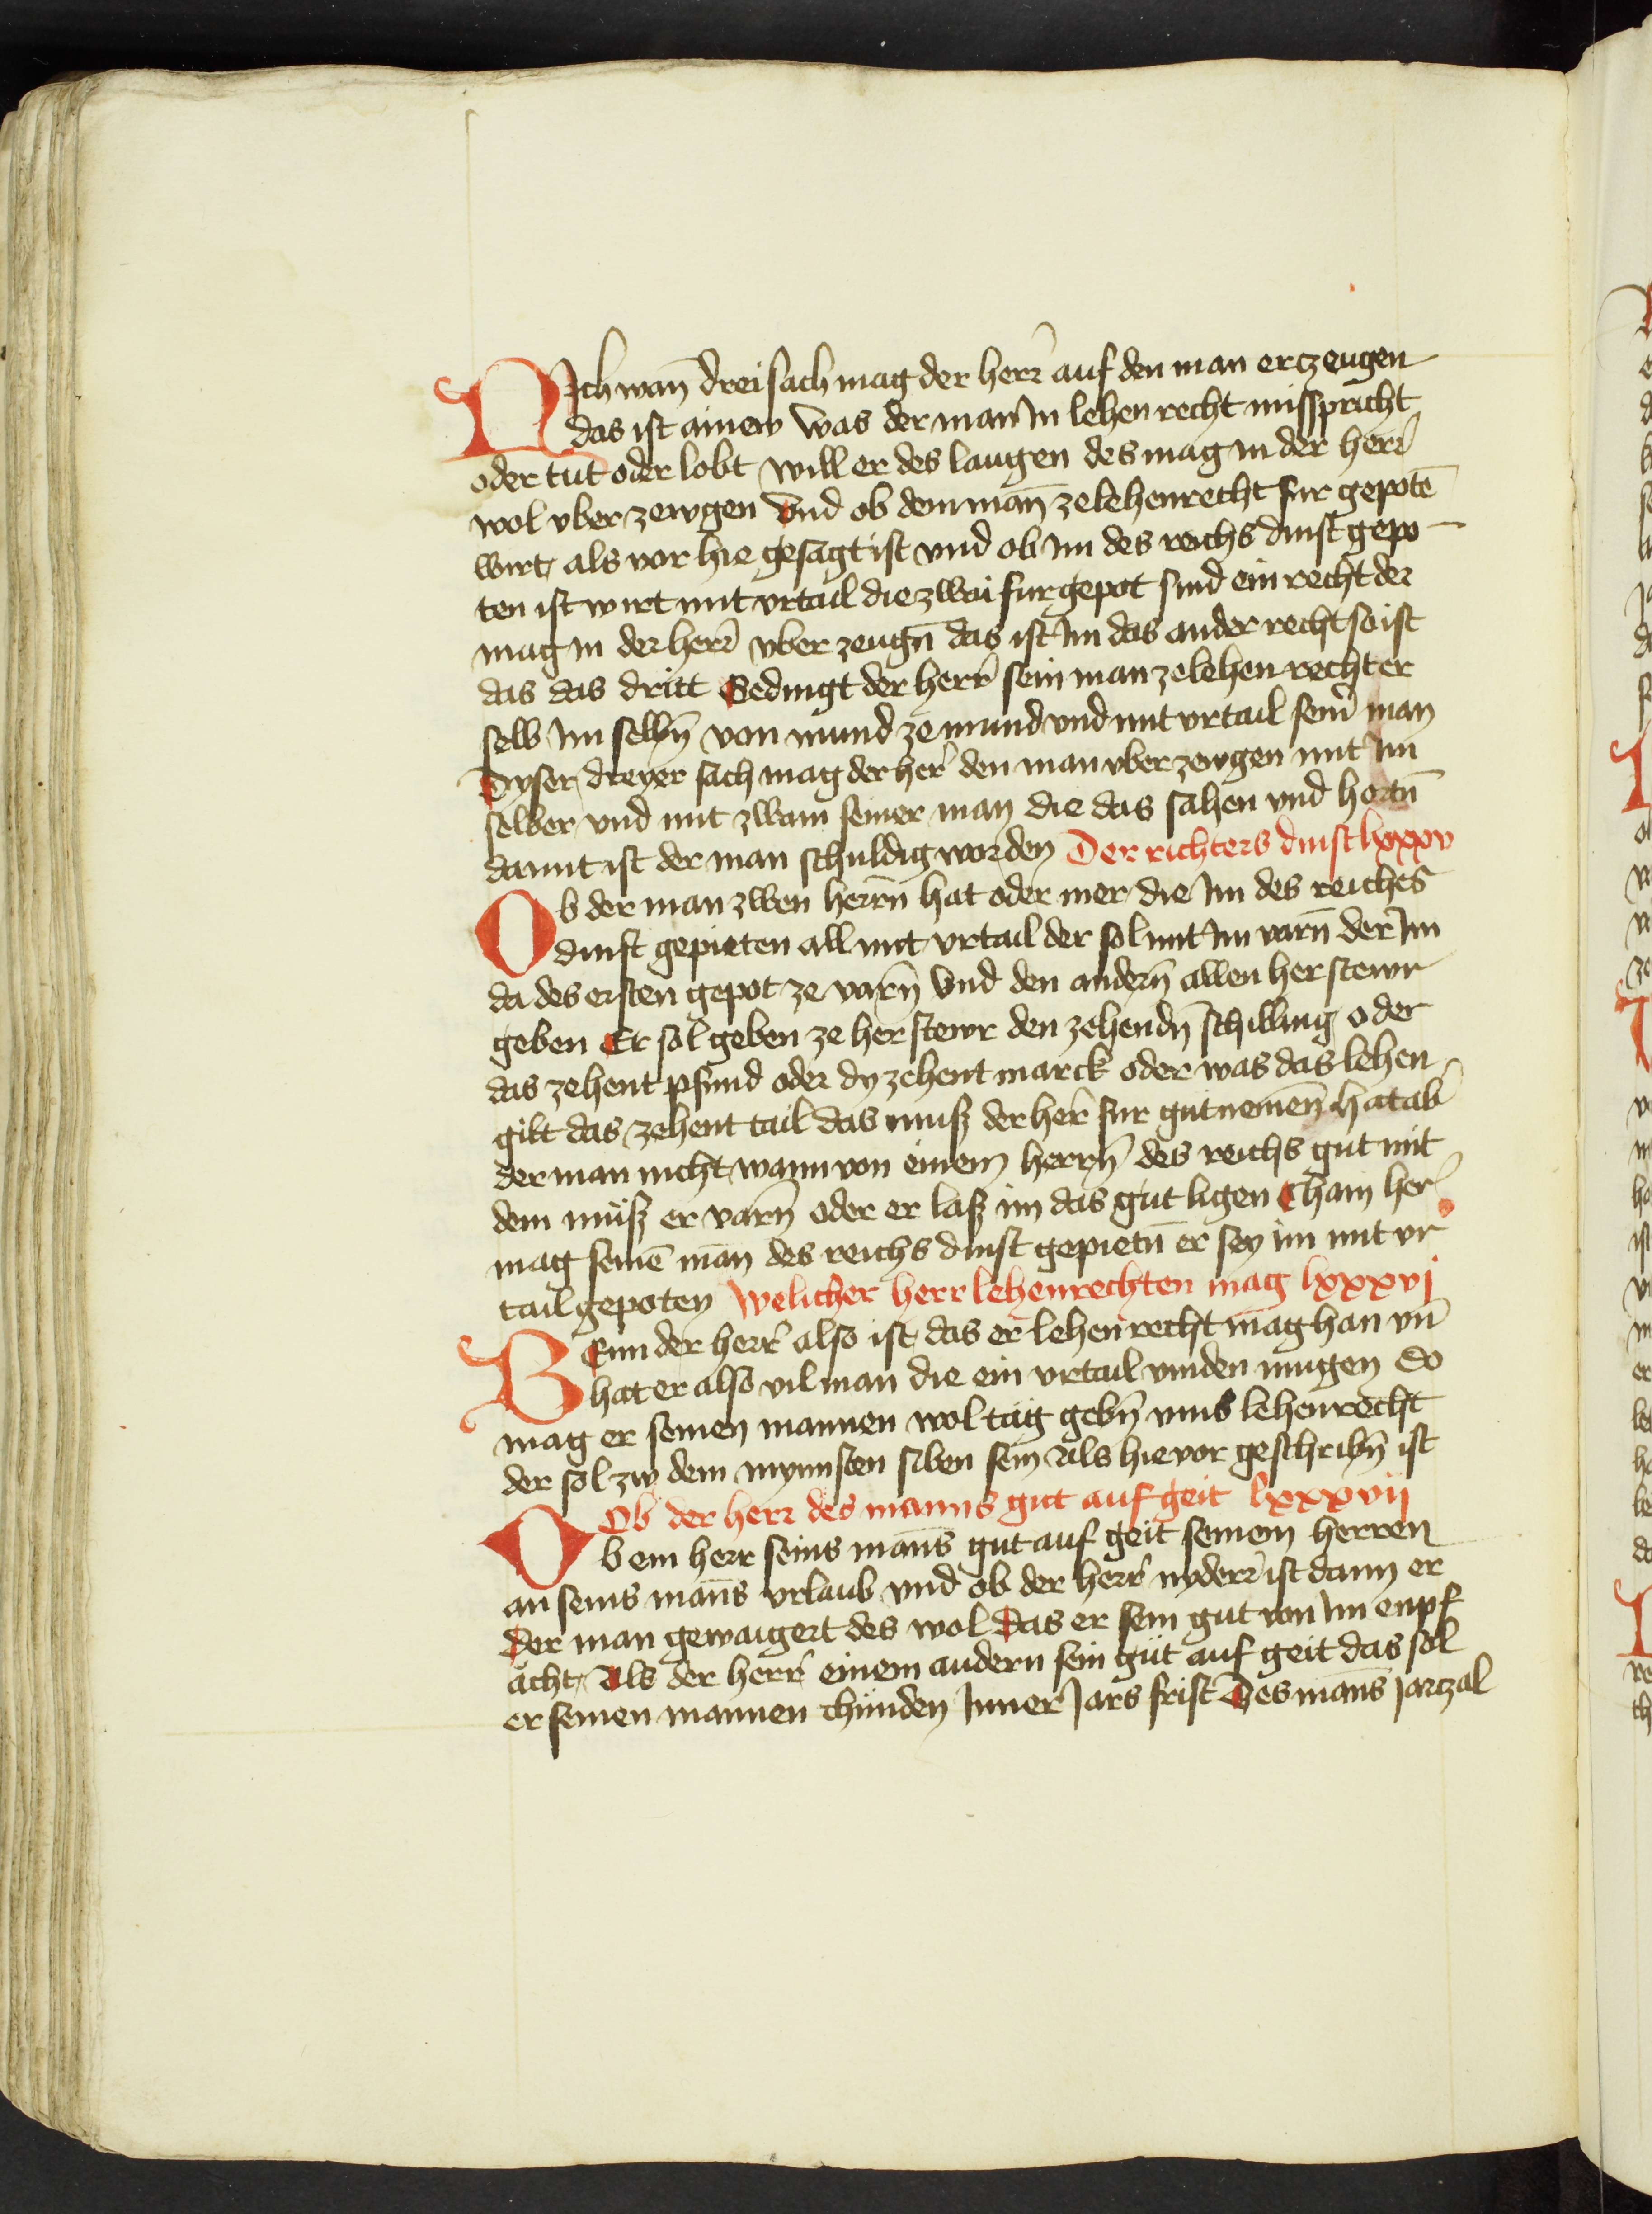 Nich wan̄ drei sach mag der herr̄ auf den man erczeugen
das ist ainew was der man In lehen recht misspricht
oder tut oder lobt will er des laugen des mag in der herr̄
wol vber zewgen Vnd ob dem man̄ ze lehenrecht fur gepotē
wirt als vor hie gesagt ist vnd ob im des reichs dinst gepo
ten ist wirt mit vrtail die zwai furgepot sind ein recht der
mag in der herr̄ vber zeugn̄ das ist Im das ander recht so ist
das das dritt Gedingt der herr̄ sein man ze lehen recht er
selb im selbn̄ von mund ze mund vnd mit vrtail sein̄ man
Dyser dreyer sach mag der her̄ den man vber zewgen mit Im
selber vnd mit zwain seiner man die das sahen vnd hortn̄
damit ist der man schuldig worden Der richters dinst lxxxv
Ob der man zwen herrn̄ hat oder mer die Im des reiches
dinst gepieten all mit vrtail der sol mit Im varn̄ der Im
da des ersten gepot ze varn̄ Vnd den andern̄ allen herstewr
geben Er sol geben ze herstewr den zehendn̄ schilling oder
das zehent pfund oder dy zehent marck oder was das lehen
gilt das zehent tail das muß der her̄ fur gut nemen̄ hat ab̄
der man nicht wann von einem herrn̄ des reichs gut mit
dem müß er varn̄ oder er laß im das gut ligen Chain her̄
mag seinē man̄ des reichs dinst gepietn̄ er sey im mit vr
tail gepoten Welicher herr lehenrechten mag lxxxvj
Wenn der herr̄ also ist das er lehen recht mag han vn̄
hat er also vil man die ein vrtail vinden mugen So
mag er seinen mannen wol tag gebn̄ vmb lehenrecht
der sol zw dem mynnsten siben sein Als hie vor geschribn̄ ist
Ob der herr des manns gut auf geit lxxxvij
Ob ein herr seins man̄s gut auf geit seinem herren
an seins man̄s vrlaub vnd ob der herr̄ nyderr̄ ist dann er
Der man gewaigert des wol Das er sein gut von Im enpf
acht Als der herr̄ einem andern sein gut auf geit das sol
er seinen mannen chunden Inner Jars frist Des man̄s jarczal